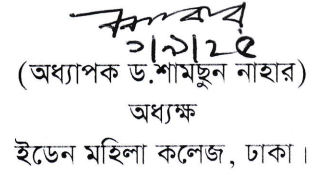 ১/৯/২৫
(অধ্যাপক ড.শামছুন নাহার)
অধ্যক্ষ
ইডেন মহিলা কলেজ, ঢাকা।